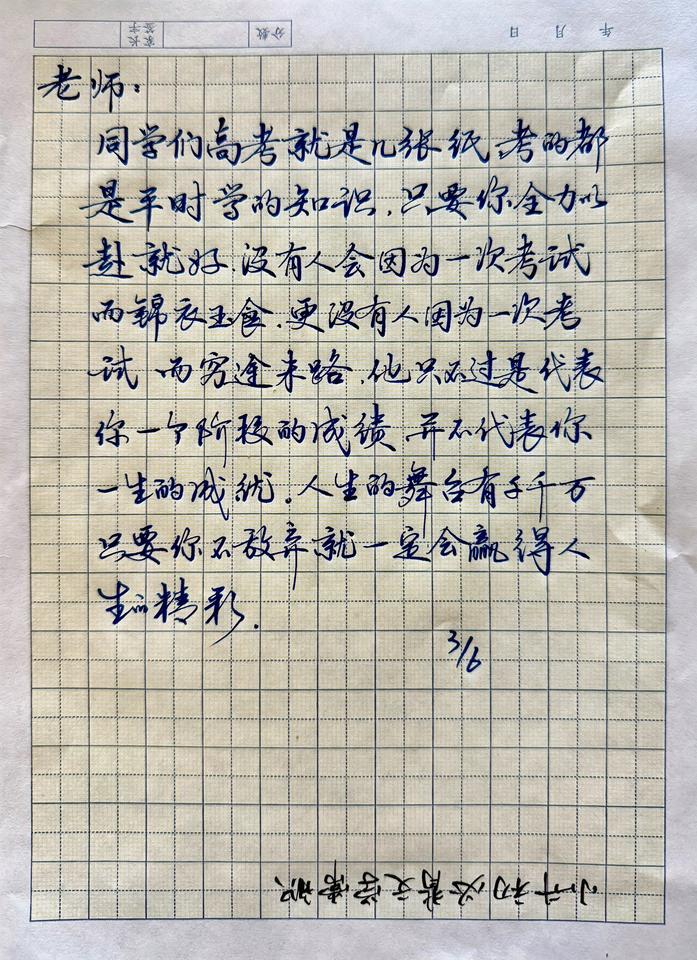 老师：
同学们高考就是几张纸,考的都
是平时学的知识,只要你全力以
赴就好.没有人会因为一次考试
而锦衣玉食.更没有人因为一次考
试 而穷途末路.他只不过是代表
你一个阶段的成绩 并不代表你
一生的成就.人生的舞台有千千万
只要你不放弃就一定会赢得人
生的精彩.
3/6
小升初必背文学常识
年 月 日
分数
家长签字